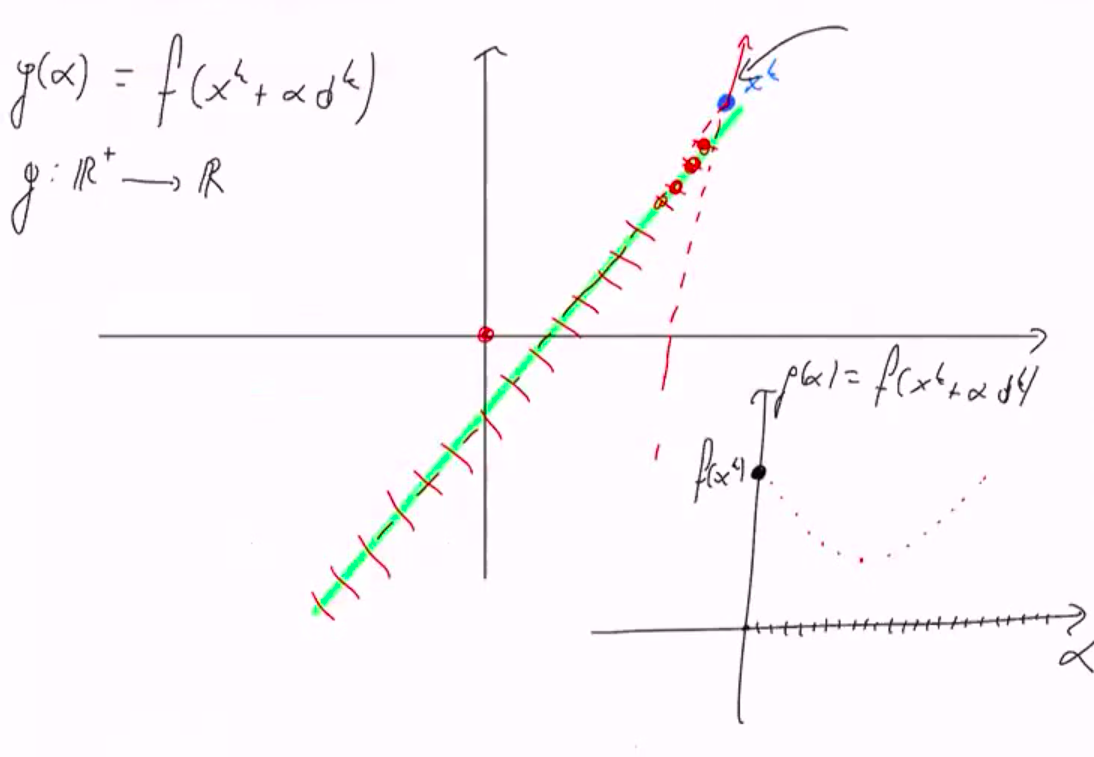 g(α) = f(x^k + α d^k)
g : ℝ^+ → ℝ
x^k
g(α) = f(x^k + α d^k)
f(x^k)
α